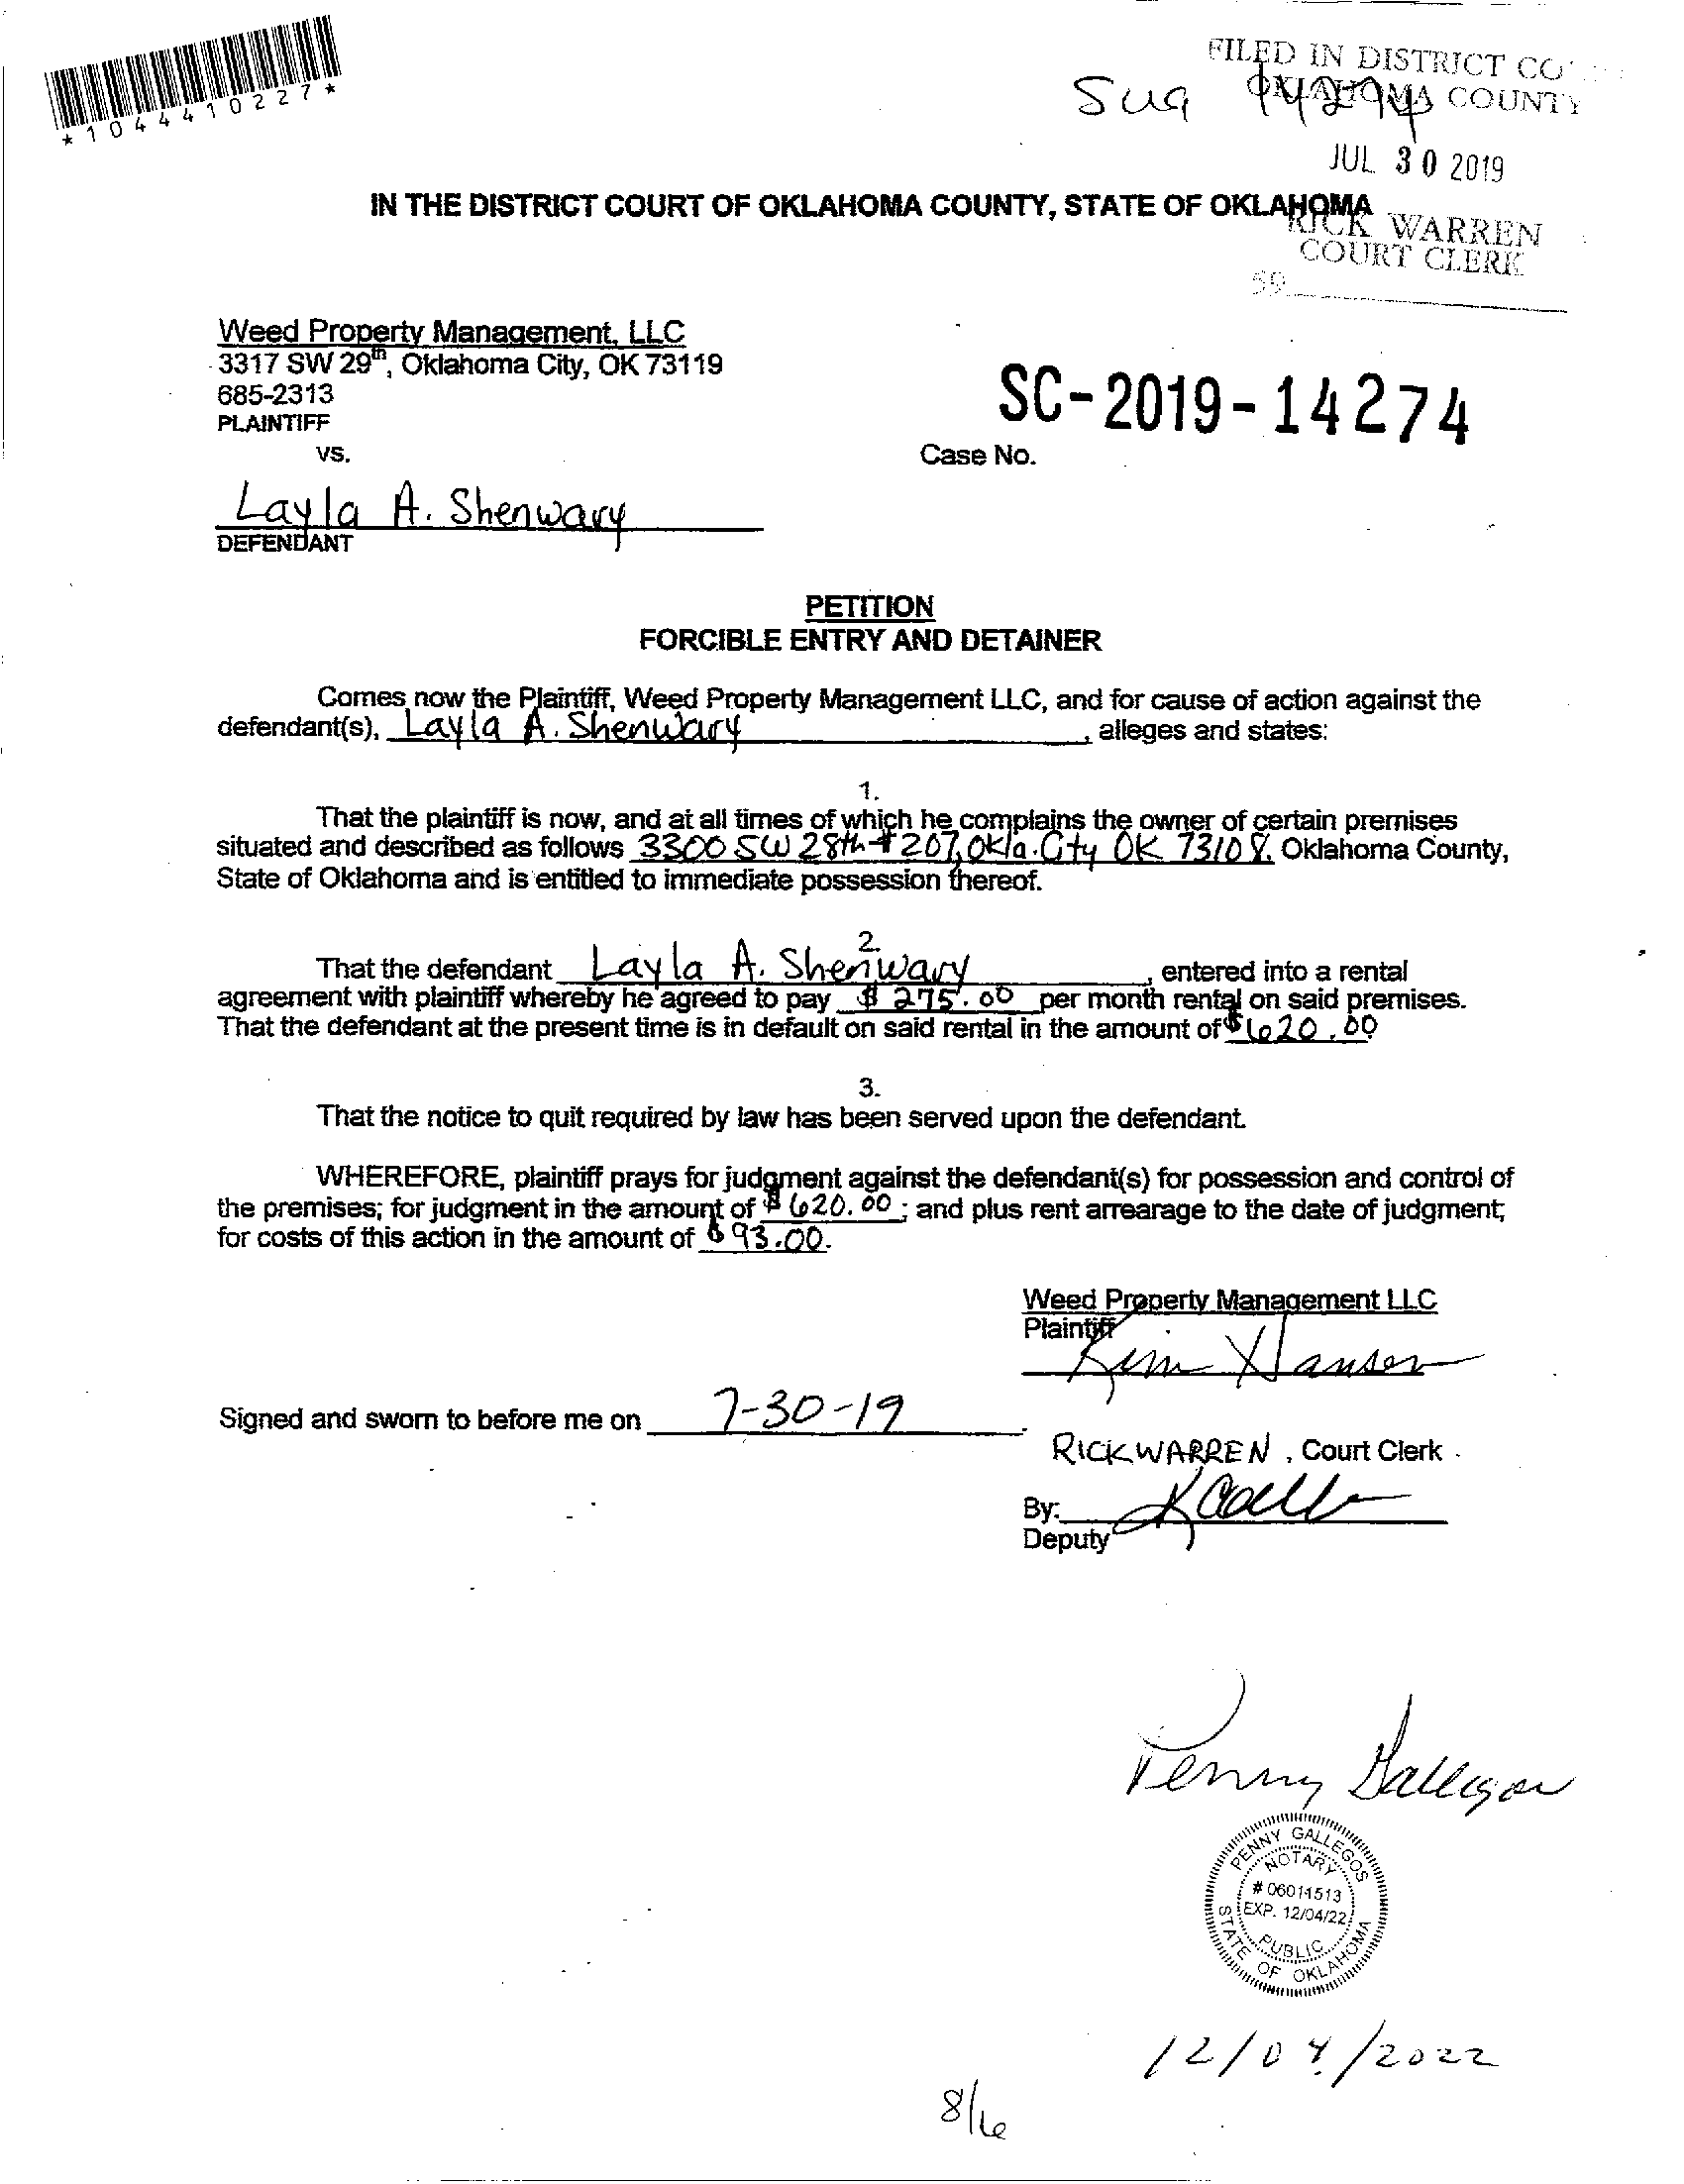 FILED IN DISTRICT CO
OKLAHOMA COUNTY
Sug
*1044410227*
JUL 30 2019
IN THE DISTRICT COURT OF OKLAHOMA COUNTY, STATE OF OKLAHOMA
RICK WARREN
COURT CLERK
59
Weed Property Management, LLC
3317 SW 29th, Oklahoma City, OK 73119
685-2313
PLAINTIFF
vs.
SC-2019-14274
Case No.
Layla A. Shenwary
DEFENDANT
PETITION
FORCIBLE ENTRY AND DETAINER
Comes now the Plaintiff, Weed Property Management LLC, and for cause of action against the
defendant(s), Layla A. Shenwary, alleges and states:
1.
That the plaintiff is now, and at all times of which he complains the owner of certain premises
situated and described as follows 3300 SW 28th # 207, Okla. City OK 73108. Oklahoma County,
State of Oklahoma and is entitled to immediate possession thereof.
2.
That the defendant Layla A. Shenwary, entered into a rental
agreement with plaintiff whereby he agreed to pay $ 275.00 per month rental on said premises.
That the defendant at the present time is in default on said rental in the amount of $620.00
3.
That the notice to quit required by law has been served upon the defendant.
WHEREFORE, plaintiff prays for judgment against the defendant(s) for possession and control of
the premises; for judgment in the amount of $620.00; and plus rent arrearage to the date of judgment;
for costs of this action in the amount of $93.00.
Weed Property Management LLC
Plaintiff
Kim Hansen
Signed and sworn to before me on 7-30-19
RICK WARREN, Court Clerk
By:
Deputy
Penny Gallegos
PENNY GALLEGOS
NOTARY
# 06011513
EXP. 12/04/22
PUBLIC
STATE OF OKLAHOMA
12/04/2022
8/16